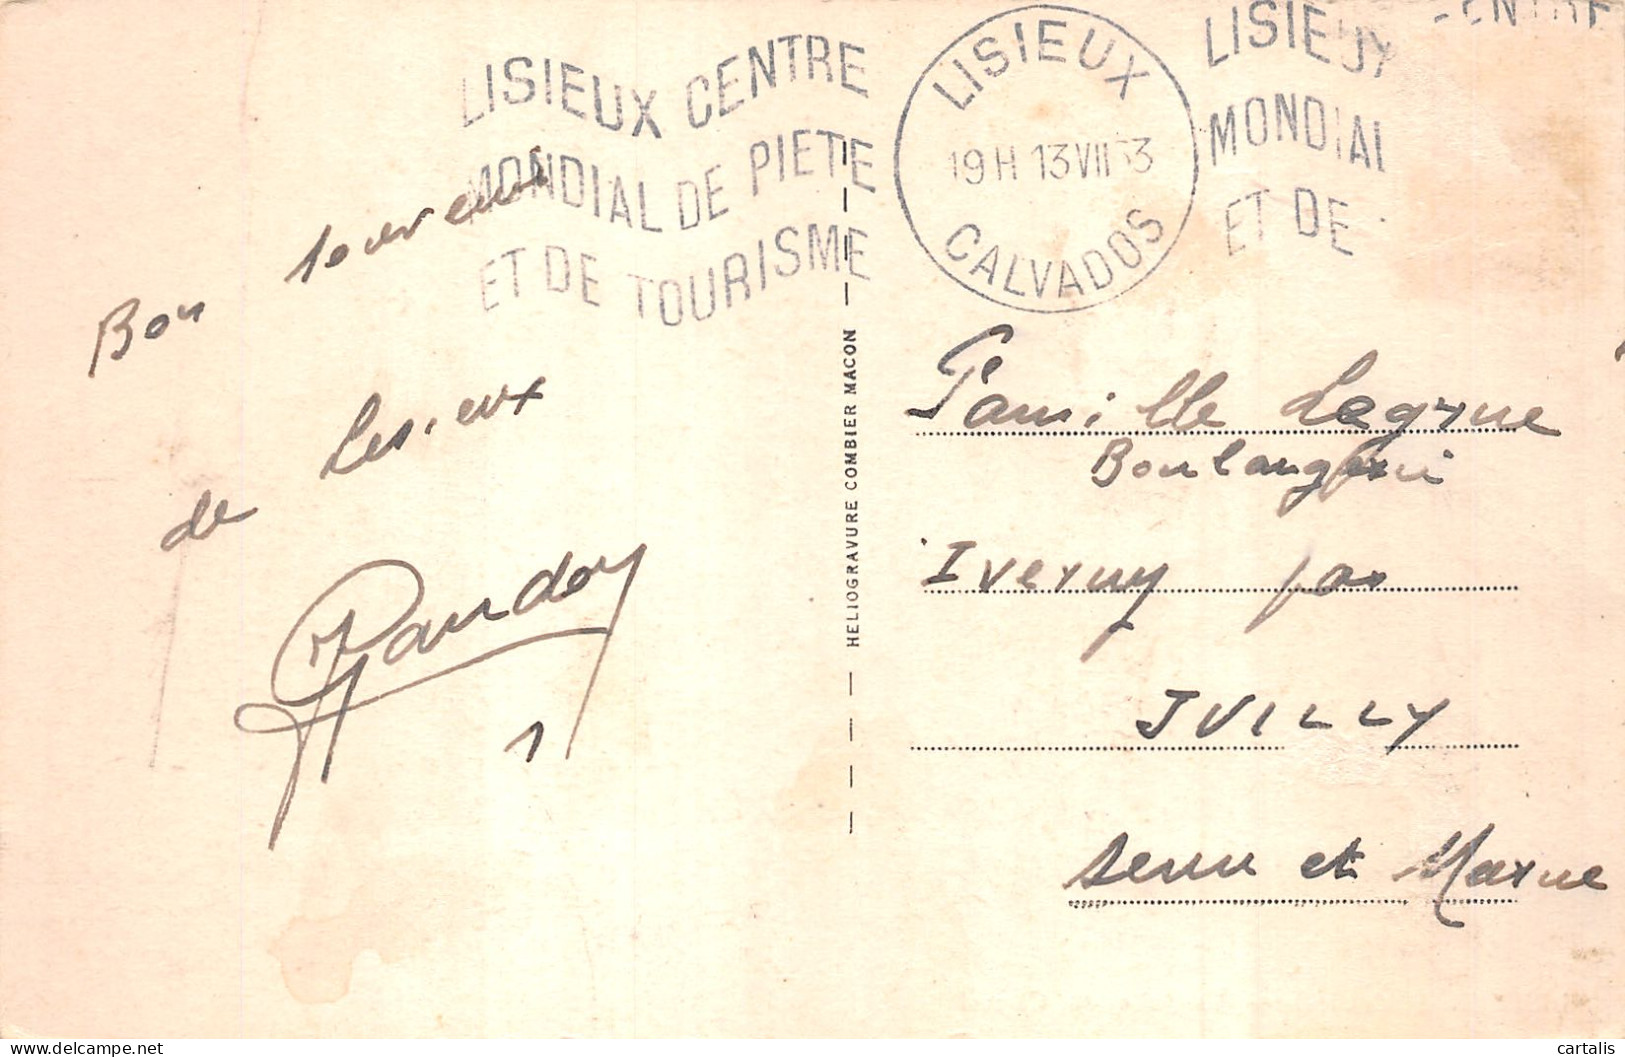 LISIEUX CENTRE
MONDIAL DE PIETE
ET DE TOURISME
LISIEUX
19H 13 VII 53
CALVADOS
LISIEUX
MONDIAL
ET DE
CENTRE
Bon souvenir
de Lisieux
HELIOGRAVURE COMBIER MACON
Famille
Boulangerie
Iverny par
JUILLY
Seine et Marne
cartalis